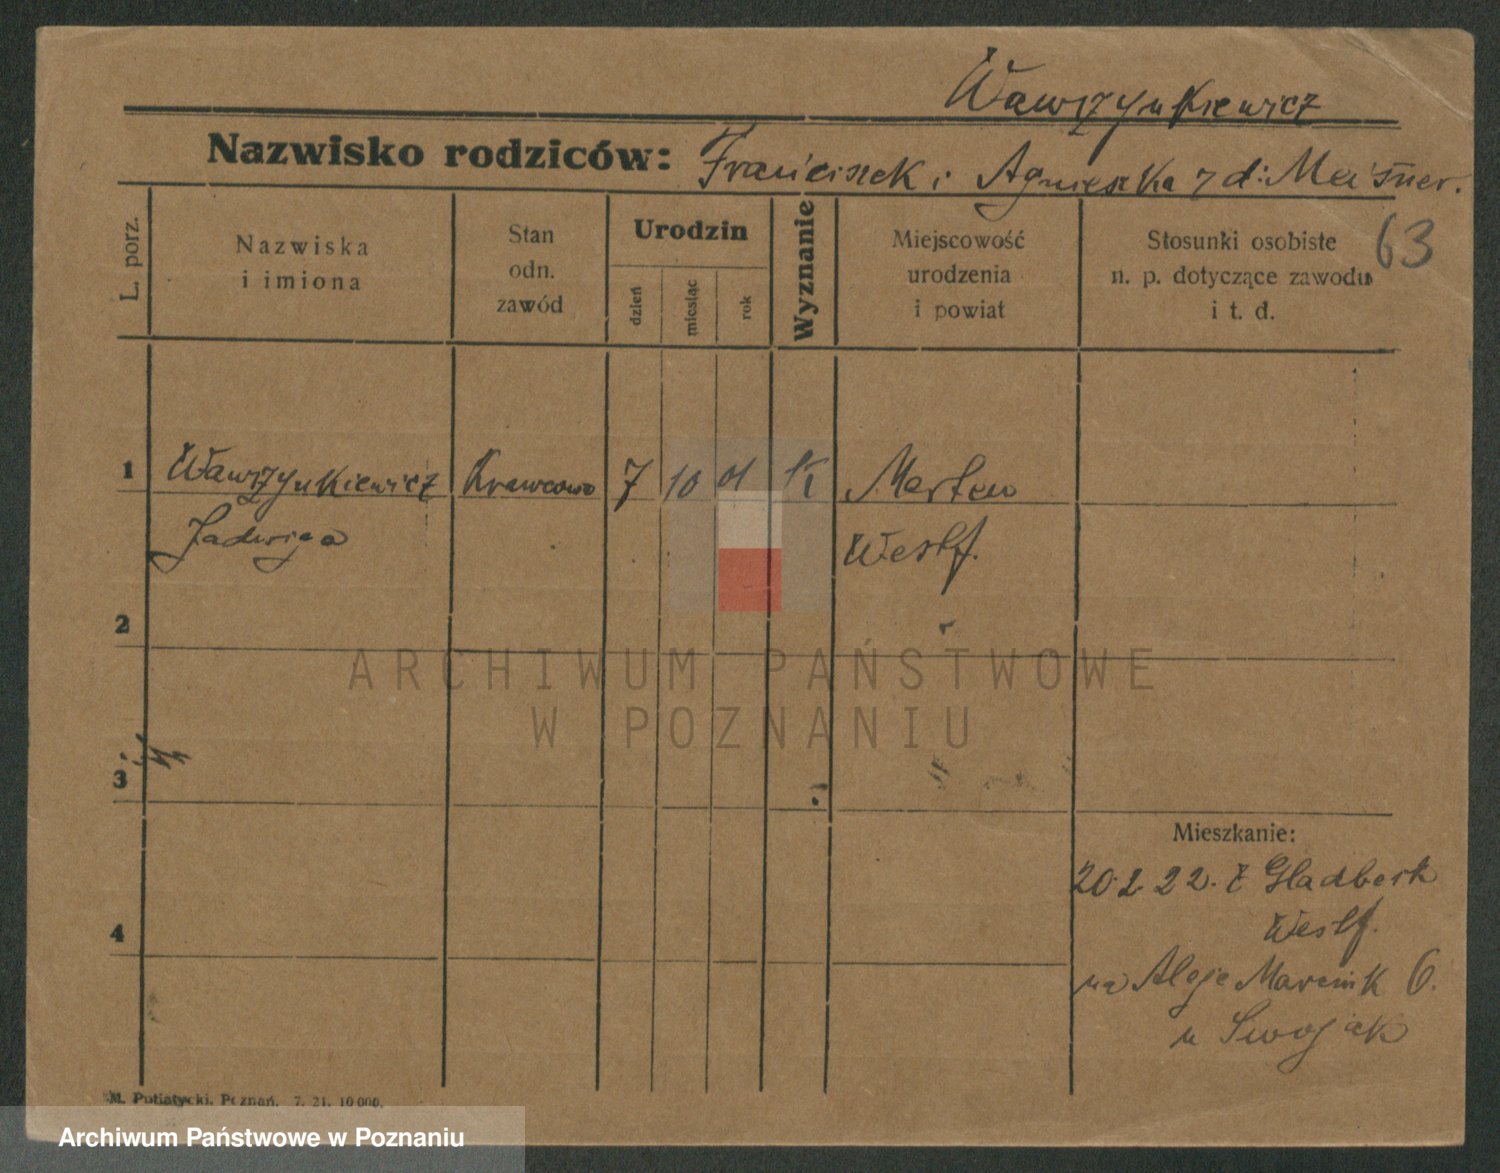 Wawrzynkiewicz
Nazwisko rodziców: Franciszek i Agnieszka z d: Meisner.
63
L. porz.
Nazwiska
i imiona
Stan
odn.
zawód
Urodzin
dzień
miesiąc
rok
Wyznanie
Miejscowość
urodzenia
i powiat
Stosunki osobiste
n. p. dotyczące zawodu
i t. d.
1 Wawrzynkiewicz Krawcowa 7 10 01 K Marten
Jadwiga Westf.
2
ARCHIWUM PAŃSTWOWE
W POZNANIU
3
Mieszkanie:
20.2.22. z Gladbeck
Westf.
4
na Aleje Marcink 6.
u Swojak
M. Putiatycki, Poznań. 7. 21. 10 000.
Archiwum Państwowe w Poznaniu